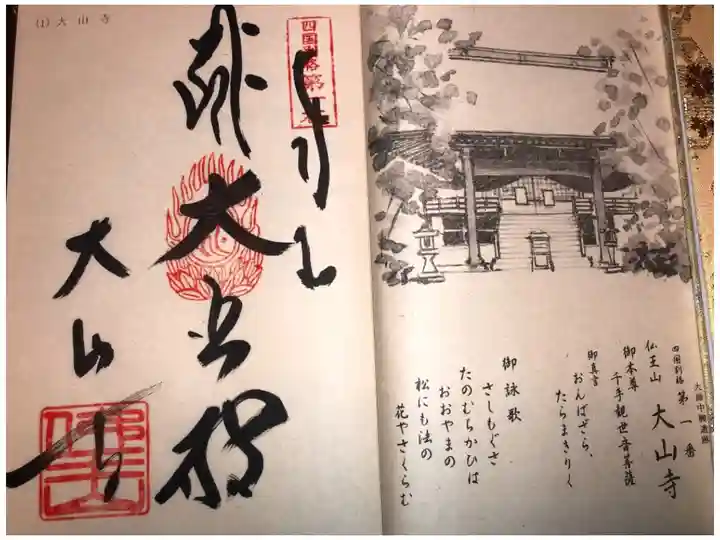 大師中興遺蹟
四国別格 第一番
仏王山 大山寺
御本尊
千手観世音菩薩
御真言
おんばざら、
たらまきりく
御詠歌
さしもぐさ
たのむちかひは
おおやまの
松にも法の
花やさくらむ
(1) 大山寺
四国別格第一番
大悲
大山寺